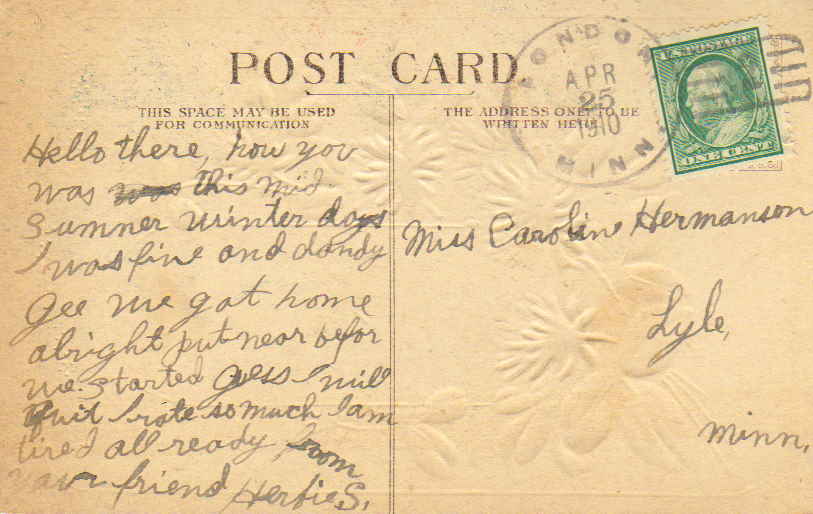 POST CARD
THIS SPACE MAY BE USED
FOR COMMUNICATION
THE ADDRESS ONLY TO BE
WRITTEN HERE
APR
25
1910
MINN.
U.S. POSTAGE
ONE CENT
Hello there, how you
was was this mid.
Summer winter days
I was fine and dandy
Gee me got home
alright put near befor
me started Gess I will
Quit I rote so much I am
tired all ready from
your friend Herbie S.
Miss Caroline Hermanson
Lyle,
Minn,